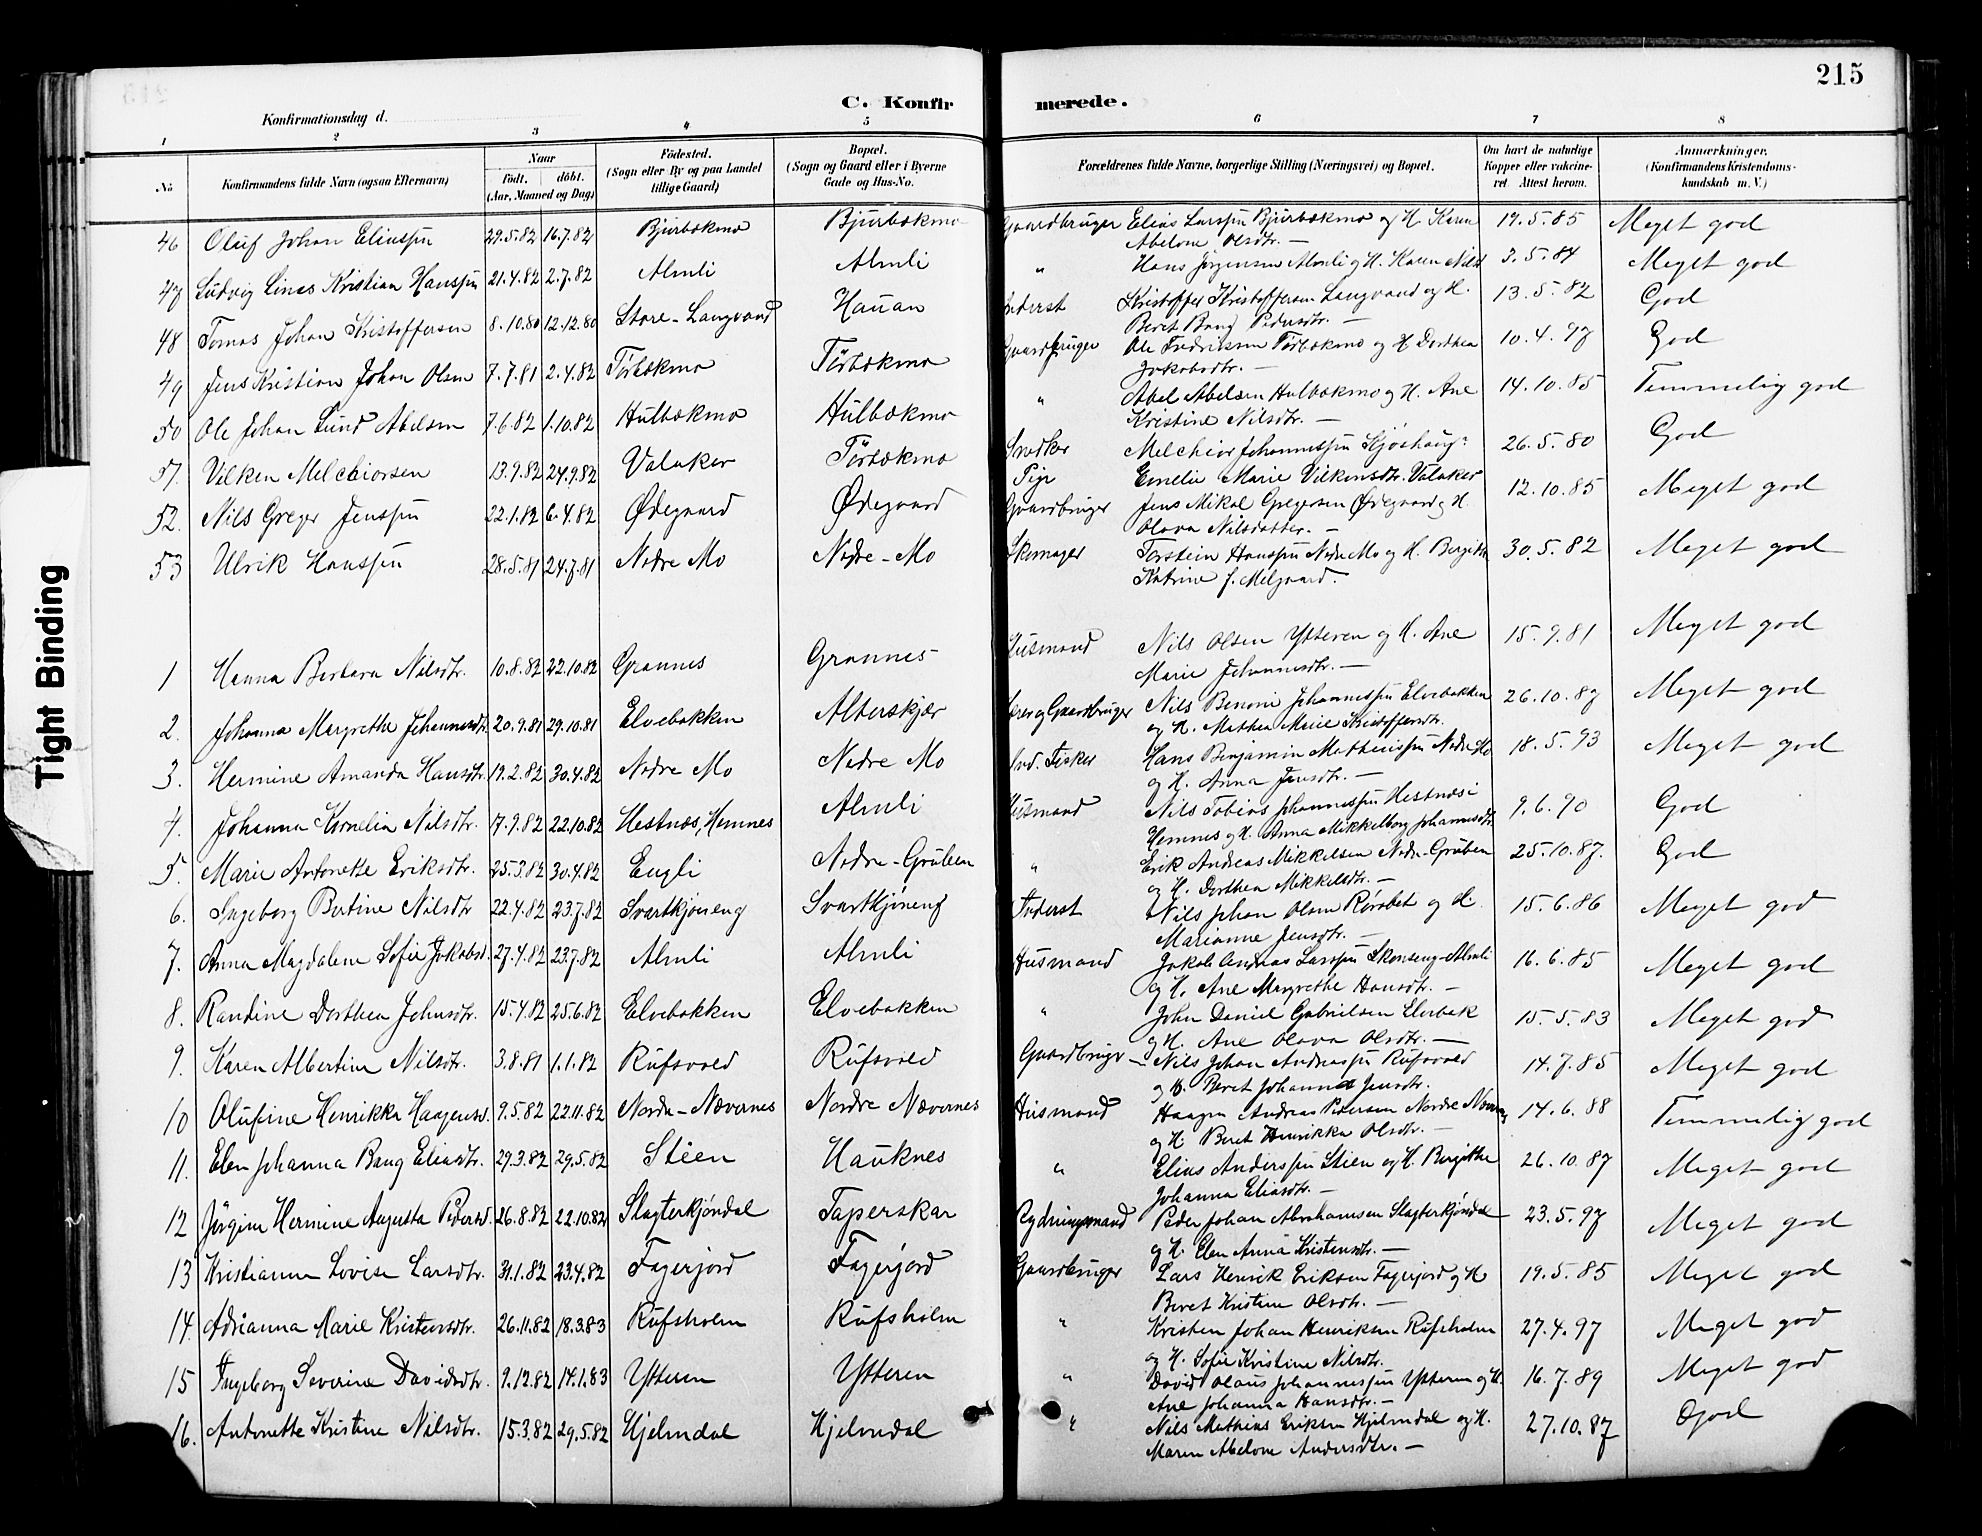 215
C. Konfirmerede.
Konfirmationsdag d.
1 2 3 4 5 6 7 8
No
Konfirmandens fulde Navn (ogsaa Efternavn)
Naar
født. døbt.
(Aar, Maaned og Dag)
Födested.
(Sogn eller By og paa Landet
tillige Gaard)
Bopæl.
(Sogn og Gaard eller i Byerne
Gade og Hus-No.
Forældrenes fulde Navne, borgerlige Stilling (Næringsvei) og Bopæl.
Om havt de naturlige
Kopper eller vakcine-
ret. Attest herom.
Anmærkninger.
(Konfirmandens Kristendoms-
kundskab m. V.)
46 Oluf Johan Eliassen 29.5.82 16.7.82 Bjurbækmo Bjurbækmo Gaardbruger Elias Larssen Bjurbækmo og H. Karen 19.5.85 Meget god
Abelone Olsdtr. —
47 Ludvig Linas Kristian Hanssen 21.4.82 2.7.82 Almli Almli " Hans Jørgensen Almli og H. Karen Nilsd 3.5.84 Meget god
48 Tomas Johan Kristoffersen 8.10.80 12.12.80 Store-Langvand Hauan Inderst Kristoffer Kristoffersen Langvand og H. 13.5.82 God
Beret Bang Pedersdtr. —
49 Jens Kristian Johan Olsen 7.7.81 2.4.82 Törbækmo Törbækmo Gaardbruger Ole Fredriksen Törbækmo og H Dorthea 10.4.97 God
Jakobsdtr. —
50 Ole Johan Lund Abelsen 7.6.82 1.10.82 Hulbækmo Hulbækmo " Abel Abelsen Hulbækmo og H. Ane 14.10.85 Temmelig god
Kristine Nilsdtr. —
51. Vilken Melchiorsen 13.9.82 24.9.82 Valaker Törbækmo Snedker Melchior Johannessen Sjøshaug 26.5.80 God
Pige Emelie Marie Vilkensdtr. Valaker
52. Nils Greger Jenssen 22.1.82 6.4.82 Ødegaard Ødegaard Gaardbruger Jens Mikal Gregersen Ødegaard og H. 12.10.85 Meget god
Olava Nilsdatter. —
53 Ulrik Hanssen 28.5.81 24.7.81 Nedre Mo Nedre-Mo Skomager Torstein Hanssen Nedre Mo og H. Bergitte 30.5.82 Meget god
Katrine f. Melgaard.
1 Hanna Barbara Nilsdtr. 10.8.82 22.10.82 Grannes Grannes Husmand Nils Olsen Ytteren og H. Ane 15.9.81 Meget god
Marie Johannesdtr. —
2. Johanna Margrethe Johannesdtr 20.9.81 29.10.81 Elvebakken Alterskjær Lærer og Gaardbruger Nils Benoni Johannessen Elvebakken 26.10.87 Meget god
og H. Mathea Marie Kristoffersdtr.
3. Hermine Amanda Hansdtr. 19.2.82 30.4.82 Nedre Mo Nedre Mo Ind. Fisker Hans Benjamin Mathiassen Nedre Mo 18.5.93 Meget god
og H. Anna Jensdtr. —
4. Johanna Kornelia Nilsdtr. 17.9.82 22.10.82 Hestnæs, Hemnes Almli Husmand Nils Tobias Johannessen Hestnæs i 9.6.90 God
Hemnes og H. Anna Mikkelborg Johannesdtr
5. Marie Antonette Eriksdtr. 25.3.82 30.4.82 Engli Nedre-Gruben " Erik Andreas Mikkelsen Nedre-Gruben 25.10.87. God
og H. Dorthea Mikkelsdtr. —
6. Ingeborg Bertine Nilsdtr 22.4.82 23.7.82 Svartkjøneng Svartkjøneng Inderst Nils Johan Olsen Rørobet og H. 15.6.86 Meget god
Marianne Jensdtr. —
7. Anna Magdalene Sofie Jakobsd. 27.4.82 23.7.82 Almli Almli Husmand Jakob Andreas Larssen Skonseng-Almli 16.6.85 Meget god
og H. Ane Margrethe Hansdtr. —
8. Randine Dorthea Johnsdtr. 15.4.82 25.6.82 Elvebakken Elvebakken " John Daniel Gabrielsen Elvebak 15.5.83 Meget god
og H. Ane Olava Olsdtr. —
9. Karen Albertine Nilsdtr. 3.8.81 1.1.82 Rüfsvold Rüfsvold Gaardbruger — Nils Johan Andreassen Rüfsvold 14.7.85 Meget god
og H. Beret Johanna Jensdtr.
10 Olufine Henrikka Haagensd. 9.5.82 22.11.82 Nordre-Nævernes Nordre Nævernes Husmand Haagen Andreas Pedersen Nordre Nævernes 14.6.88 Temmelig god
og H. Beret Henrikka Olsdtr. —
11. Elen Johanna Bang Eliasdtr. 29.3.82 29.5.82 Stien Hauknes " Elias Anderssen Stien og H. Bergitha 26.10.87 Meget god
Johanna Eliasdtr. —
12 Jörgine Hermine Augusta Pedersd. 26.8.82 22.10.82 Slagterkjøndal Taperskar Rydningsmand Peder Johan Abrahamsen Slagterkjøndal 23.5.97 Meget god
og H. Elen Anna Kristensdtr. —
13 Kristianna Lovise Larsdtr. 31.1.82 23.4.82 Fagerjord Fagerjord Gaardbruger Lars Henrik Eriksen Fagerjord og H 19.5.85 Meget god
Beret Kristine Olsdtr. —
14. Adrianna Marie Kristensdtr. 26.11.82 18.3.83 Rüfsholm Rüfsholm " Kristen Johan Henriksen Rüfsholm 27.4.97 Meget god
og H. Sofie Kristine Nilsdtr.
15 Ingeborg Severine Davidsdtr. 9.12.82 14.1.83 Ytteren Ytteren " David Olaus Johannessen Ytteren og H. 16.7.89 Meget god
Ane Johanna Hansdtr. —
16. Antonette Kristine Nilsdtr. 15.3.82 29.5.82 Hjelmdal Hjelmdal " Nils Mathias Eriksen Hjelmdal og H. 27.10.87 God
Maren Abelone Andersdtr. —
Tight Binding